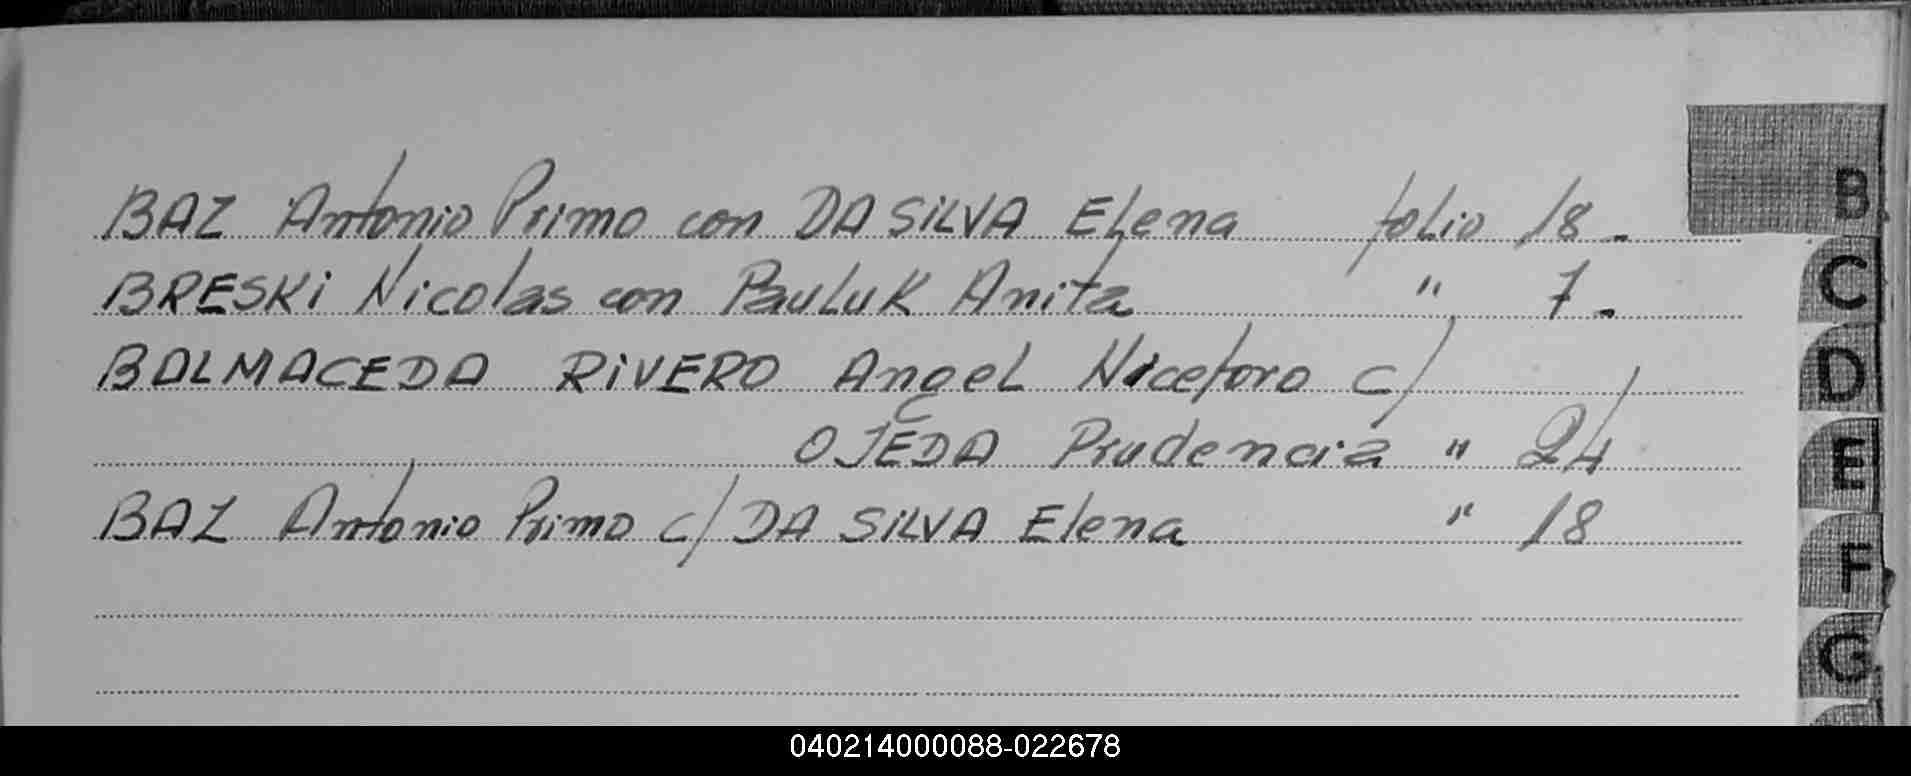 BAZ Antonio Primo con DA SILVA Elena folio 18.
BRESKI Nicolas con Pauluk Anita " 7.
BALMACEDA RIVERO Angel Niceforo c/
OJEDA Prudencia " 24
BAZ Antonio Primo c/ DA SILVA Elena " 18
B
C
D
E
F
G
040214000088-022678